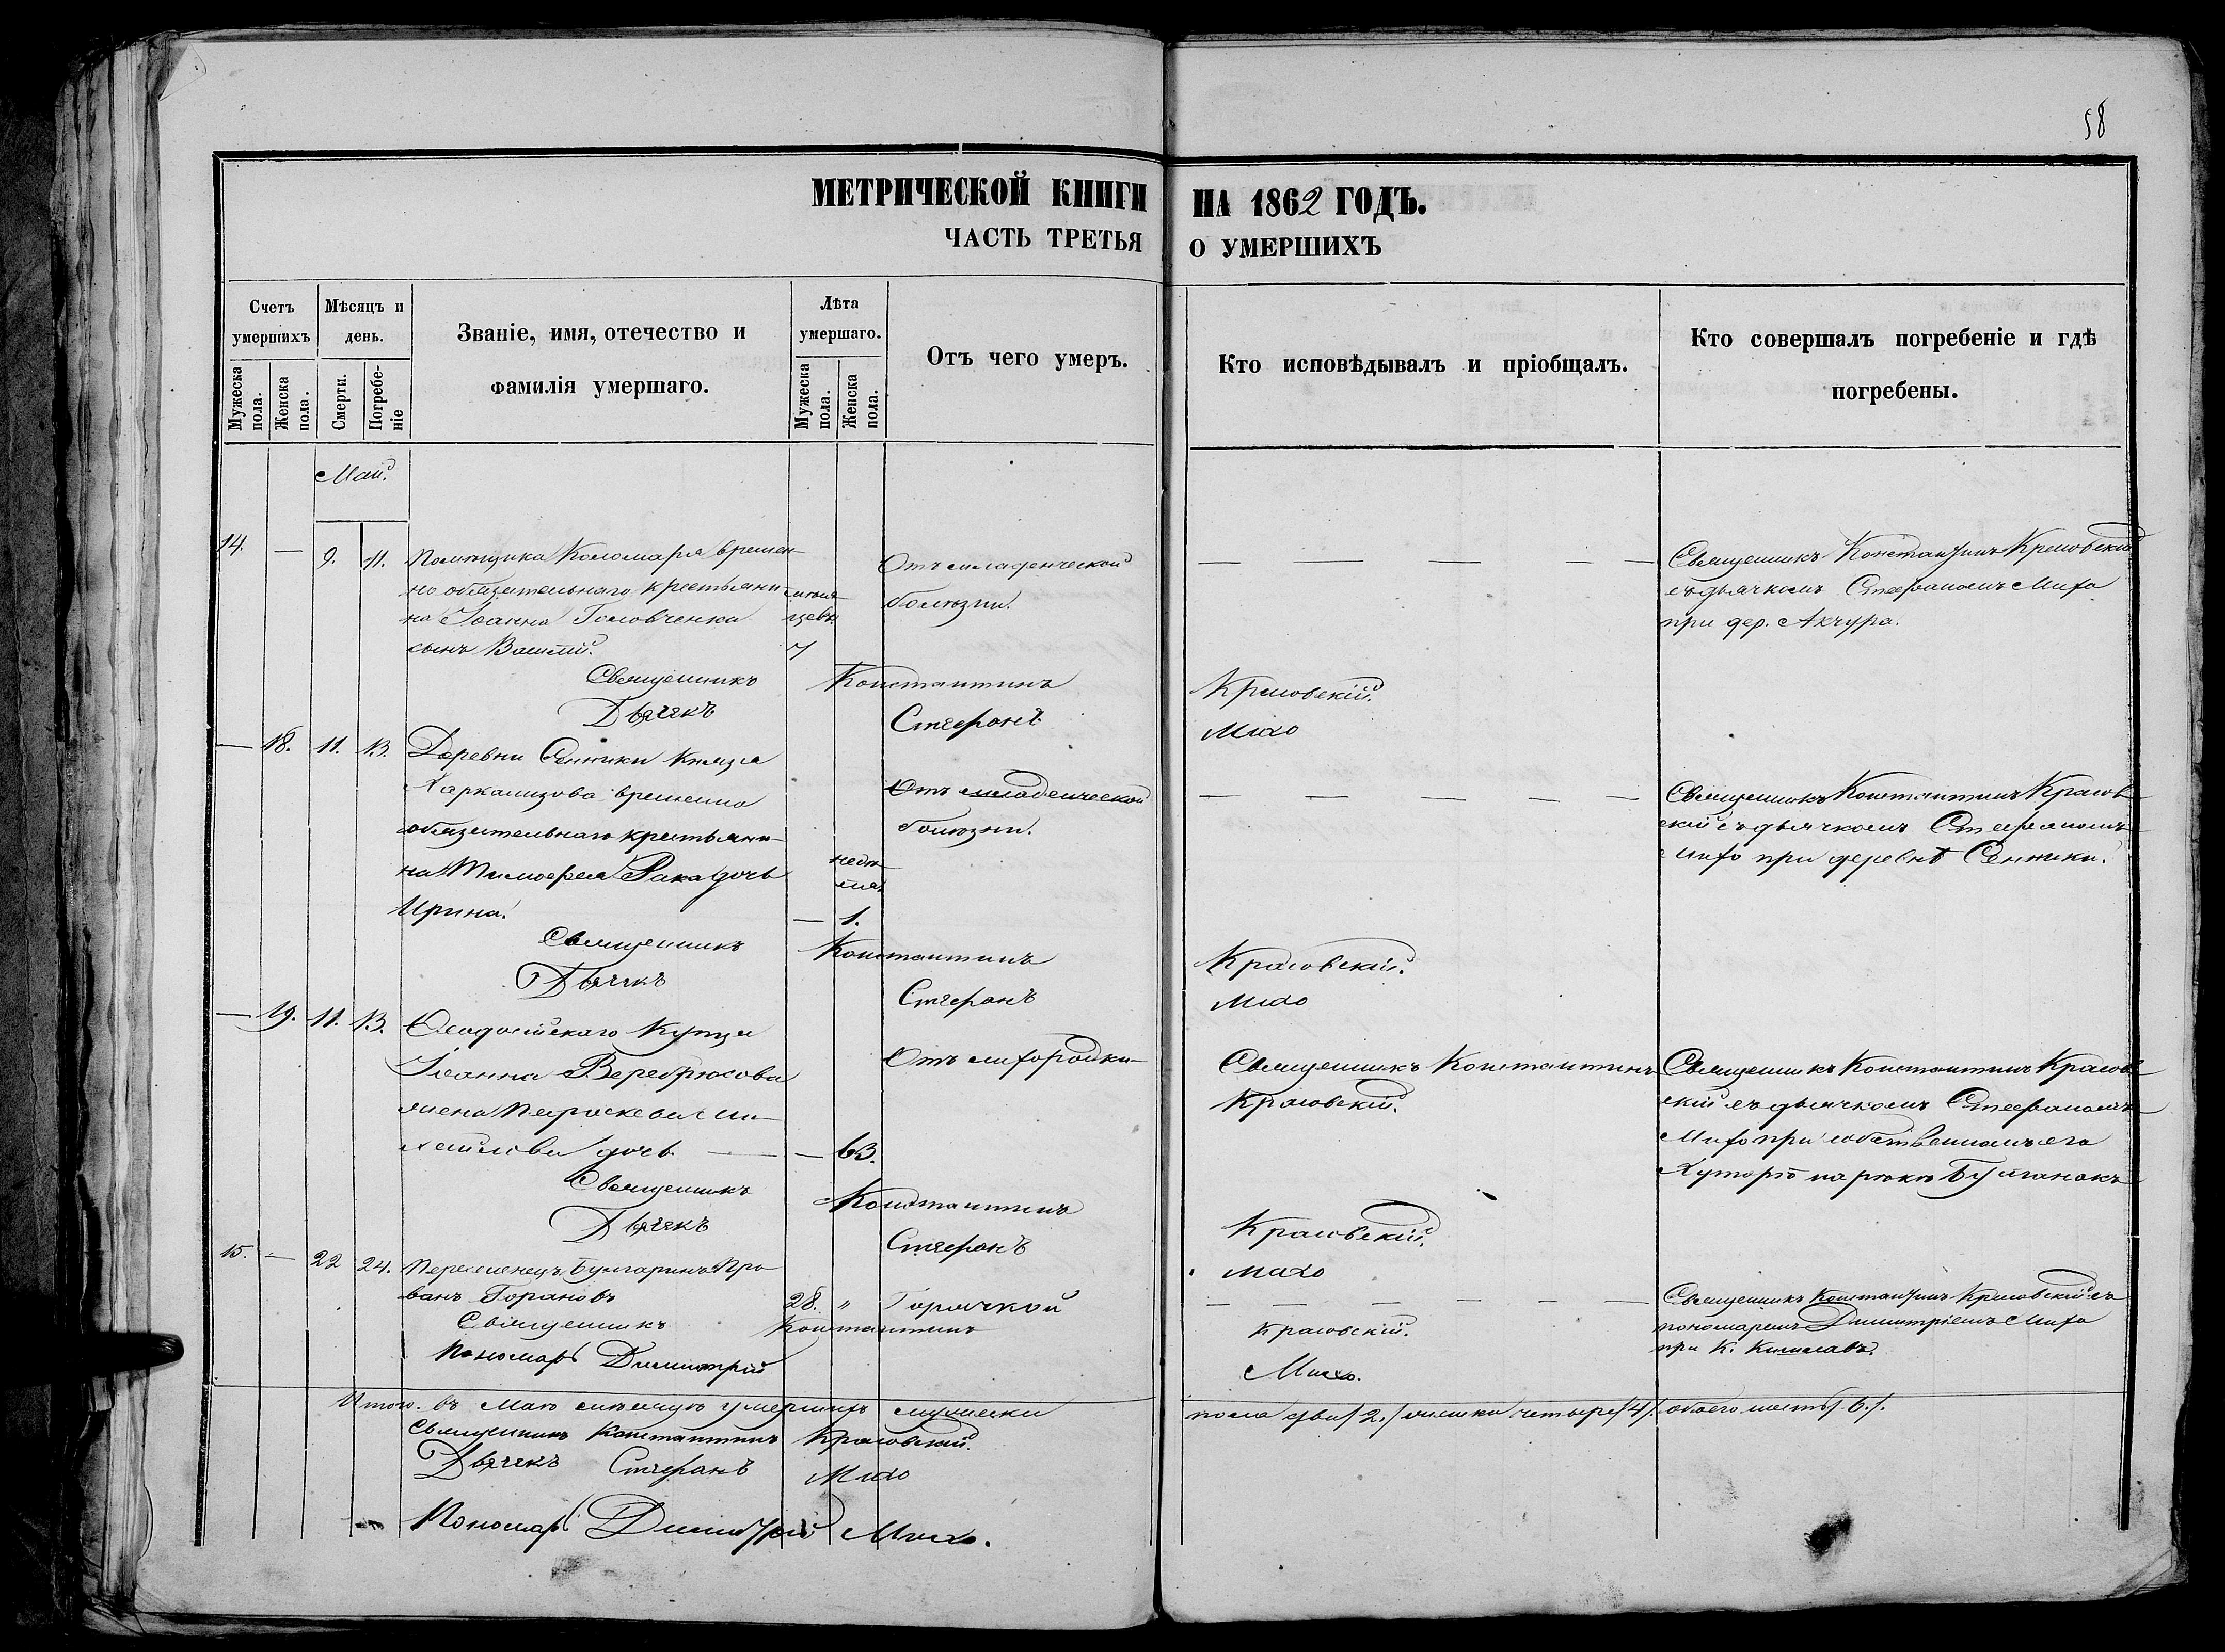 58
МЕТРИЧЕСКОЙ КНИГИ НА 1862 ГОДЪ.
ЧАСТЬ ТРЕТЬЯ О УМЕРШИХЪ
Счетъ умершихъ
Мужеска пола.
Женска пола.
Мѣсяцъ и день.
Смерти.
Погребеніе
Званіе, имя, отечество и
фамилія умершаго.
Лѣта умершаго.
Мужеска пола.
Женска пола.
Отъ чего умеръ.
Кто исповѣдывалъ и пріобщалъ.
Кто совершалъ погребеніе и гдѣ
погребены.
Май.
14. — 9. 11. Помѣщика временно
обязательнаго крестьяни-
на Іоанна Головченка
сынъ Василій.
мѣсяцевъ
7
Отъ младенческой
болѣзни.
— — — — —
Священникъ Константинъ Красовскій
съ дьячкомъ Стефаномъ Михо
при дер. Акчура.
Священникъ Константинъ Красовскій.
Дьячекъ Стефанъ Михо
— 18. 11. 13. Деревни Сенники Князя
временно
обязательнаго крестьяни-
на Тимофея дочь
Ирина.
недѣля
— 1.
Отъ младенческой
болѣзни.
— — — — —
Священникъ Константинъ Красов-
скій съ дьячкомъ Стефаномъ
Михо при деревнѣ Сенники.
Священникъ Константинъ Красовскій.
Дьячекъ Стефанъ Михо
— 19. 11. 13. Ѳеодосійскаго Купца
Іоанна Веребрюсова
жена Параскева Ми-
хайлова дочь — — 63.
Отъ лихорадки
Священникъ Константинъ
Красовскій.
Священникъ Константинъ Красов-
скій съ дьячкомъ Стефаномъ
Михо при собственномъ его
Хуторѣ на рѣкѣ Булганакъ
Священникъ Константинъ Красовскій.
Дьячекъ Стефанъ Михо
15. — 22 24. Переселенецъ Булгаринъ
Горановъ
28. „ Горячкой
— — — — —
Священникъ Константинъ Красовскій съ
пономаремъ Димитріемъ Михо
при К.
Священникъ Константинъ Красовскій.
Пономарь Димитрій Михо.
Итого въ Маѣ мѣсяцѣ умершихъ мужеска пола два /2./ женска четыре /4/. обоего шесть /6./.
Священникъ Константинъ Красовскій.
Дьячекъ Стефанъ Михо
Пономарь Димитрій Михо.